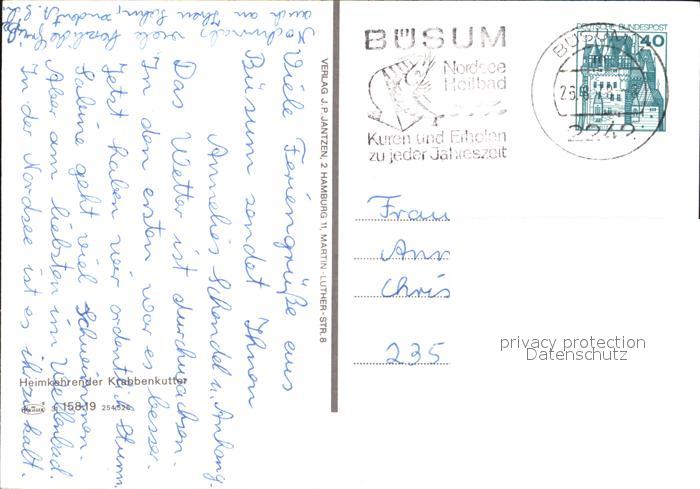 Viele Feriengrüße aus
Büsum sendet Ihnen
Annelies Schendel u. Anhang.
Das Wetter ist durchwachsen.
In den ersten war es besser.
Jetzt haben wir ordentlich Sturm.
Sabine geht viel schwimmen.
Aber am liebsten im Wellenbad.
In der Nordsee ist es ihr zu kalt.
Nochmals viele herzliche
auch an Ihren
VERLAG J. P. JANTZEN, 2 HAMBURG 11, MARTIN-LUTHER-STR. 8
BÜSUM
Nordsee
Heilbad
Kuren und Erholen
zu jeder Jahreszeit
DEUTSCHE BUNDESPOST
40
BÜSUM
2242
Frau
Ann
Chris
235
privacy protection
Datenschutz
Heimkehrender Krabbenkutter
158.19